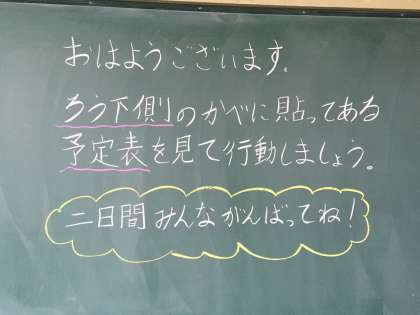 おはようございます。
ろう下側のかべに貼ってある
予定表を見て行動しましょう。
二日間みんながんばってね!